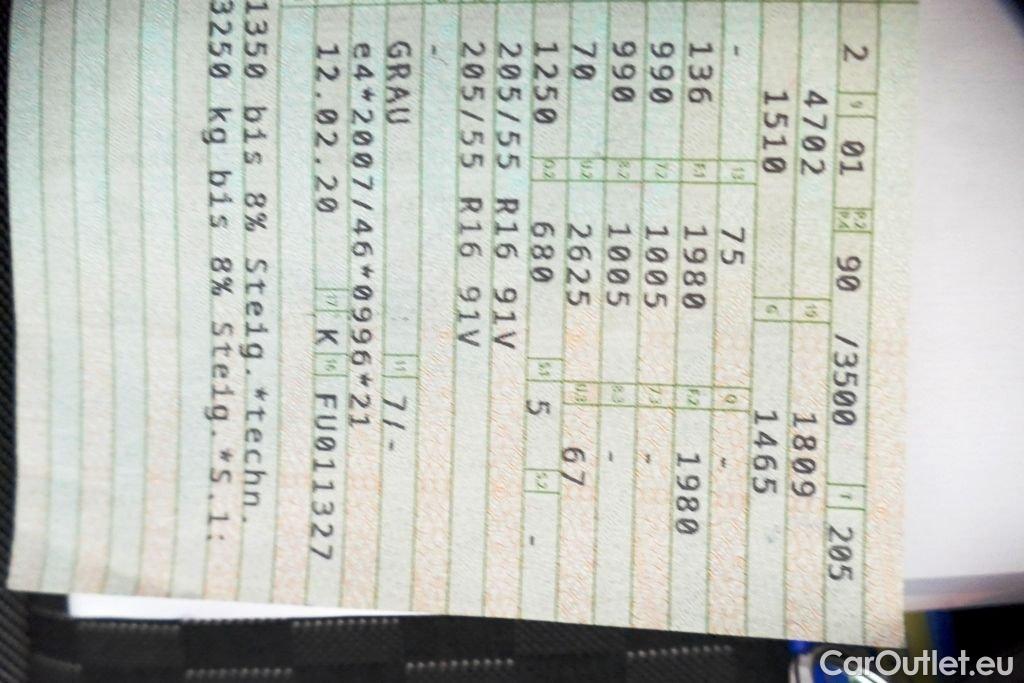 2 9 01 P.2 P.4 90 /3500 T 205
4702 19 1809
1510 G 1465
- 13 75 Q -
136 F.1 1980 F.2 1980
990 7.2 1005 7.3 -
990 8.2 1005 8.3 -
70 U.2 2625 U.3 67
1250 O.2 680 S.1 5 S.2 -
205/55 R16 91V
205/55 R16 91V
-
GRAU 11 7/-
e4*2007/46*0996*21
12.02.20 17 K 16 FU011327
1350 bis 8% Steig.*techn.
3250 kg bis 8% Steig.*S.1:
CarOutlet.eu